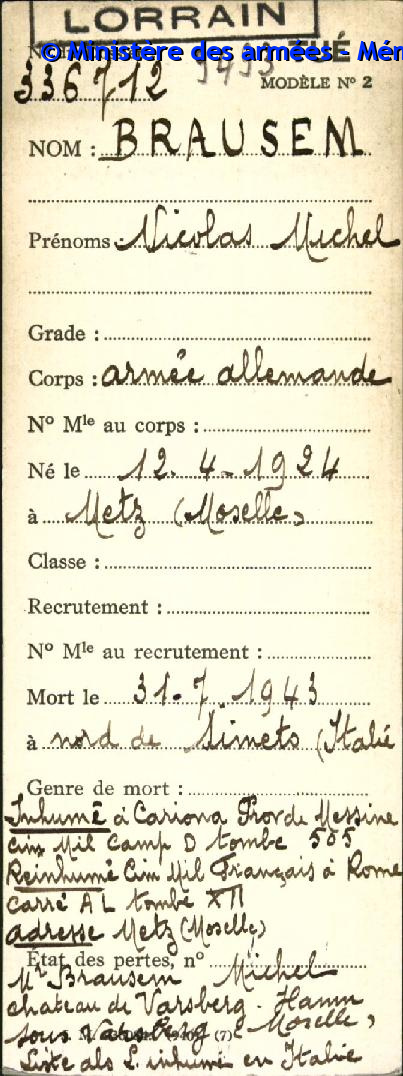 LORRAIN
© Ministère des armées - Mém
TUÉ
336712
MODÈLE Nº 2
NOM : BRAUSEM
Prénoms : Nicolas Michel
Grade :
Corps : armée allemande
Nº Mle au corps :
Né le 12.4.1924
à Metz (Moselle)
Classe :
Recrutement :
Nº Mle au recrutement :
Mort le 31.7.1943
à nord de Simeto (Italie
Genre de mort :
Inhumé à Cariona Prov de Messine
cim Mil Camp D tombe 505
Reinhumé Cim Mil Français à Rome
Carré A L tombe XII
adresse Metz (Moselle)
État des pertes, nº
Mr Brausem Michel
chateau de Varsberg - Hamm
sous Varsberg (Moselle)
(7)
Liste als L. inhumé en Italie